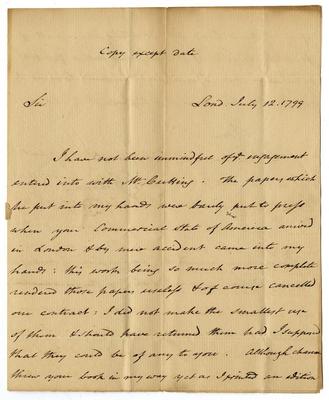 Copy except date
Sir Lond. July 12. 1799
I have not been unmindful of ye engagement
entered into with Mr. Cutting. The papers which
he put into my hands were barely put to press
when your Commercial State of America arrived
in London & by mere accident came into my
hands: this work being so much more complete
rendered those papers useless & of course cancelled
our contract: I did not make the smallest use
of them & should have returned them had I supposed
that they could be of any to you. Although chance
threw your book in my way yet as I printed an edition